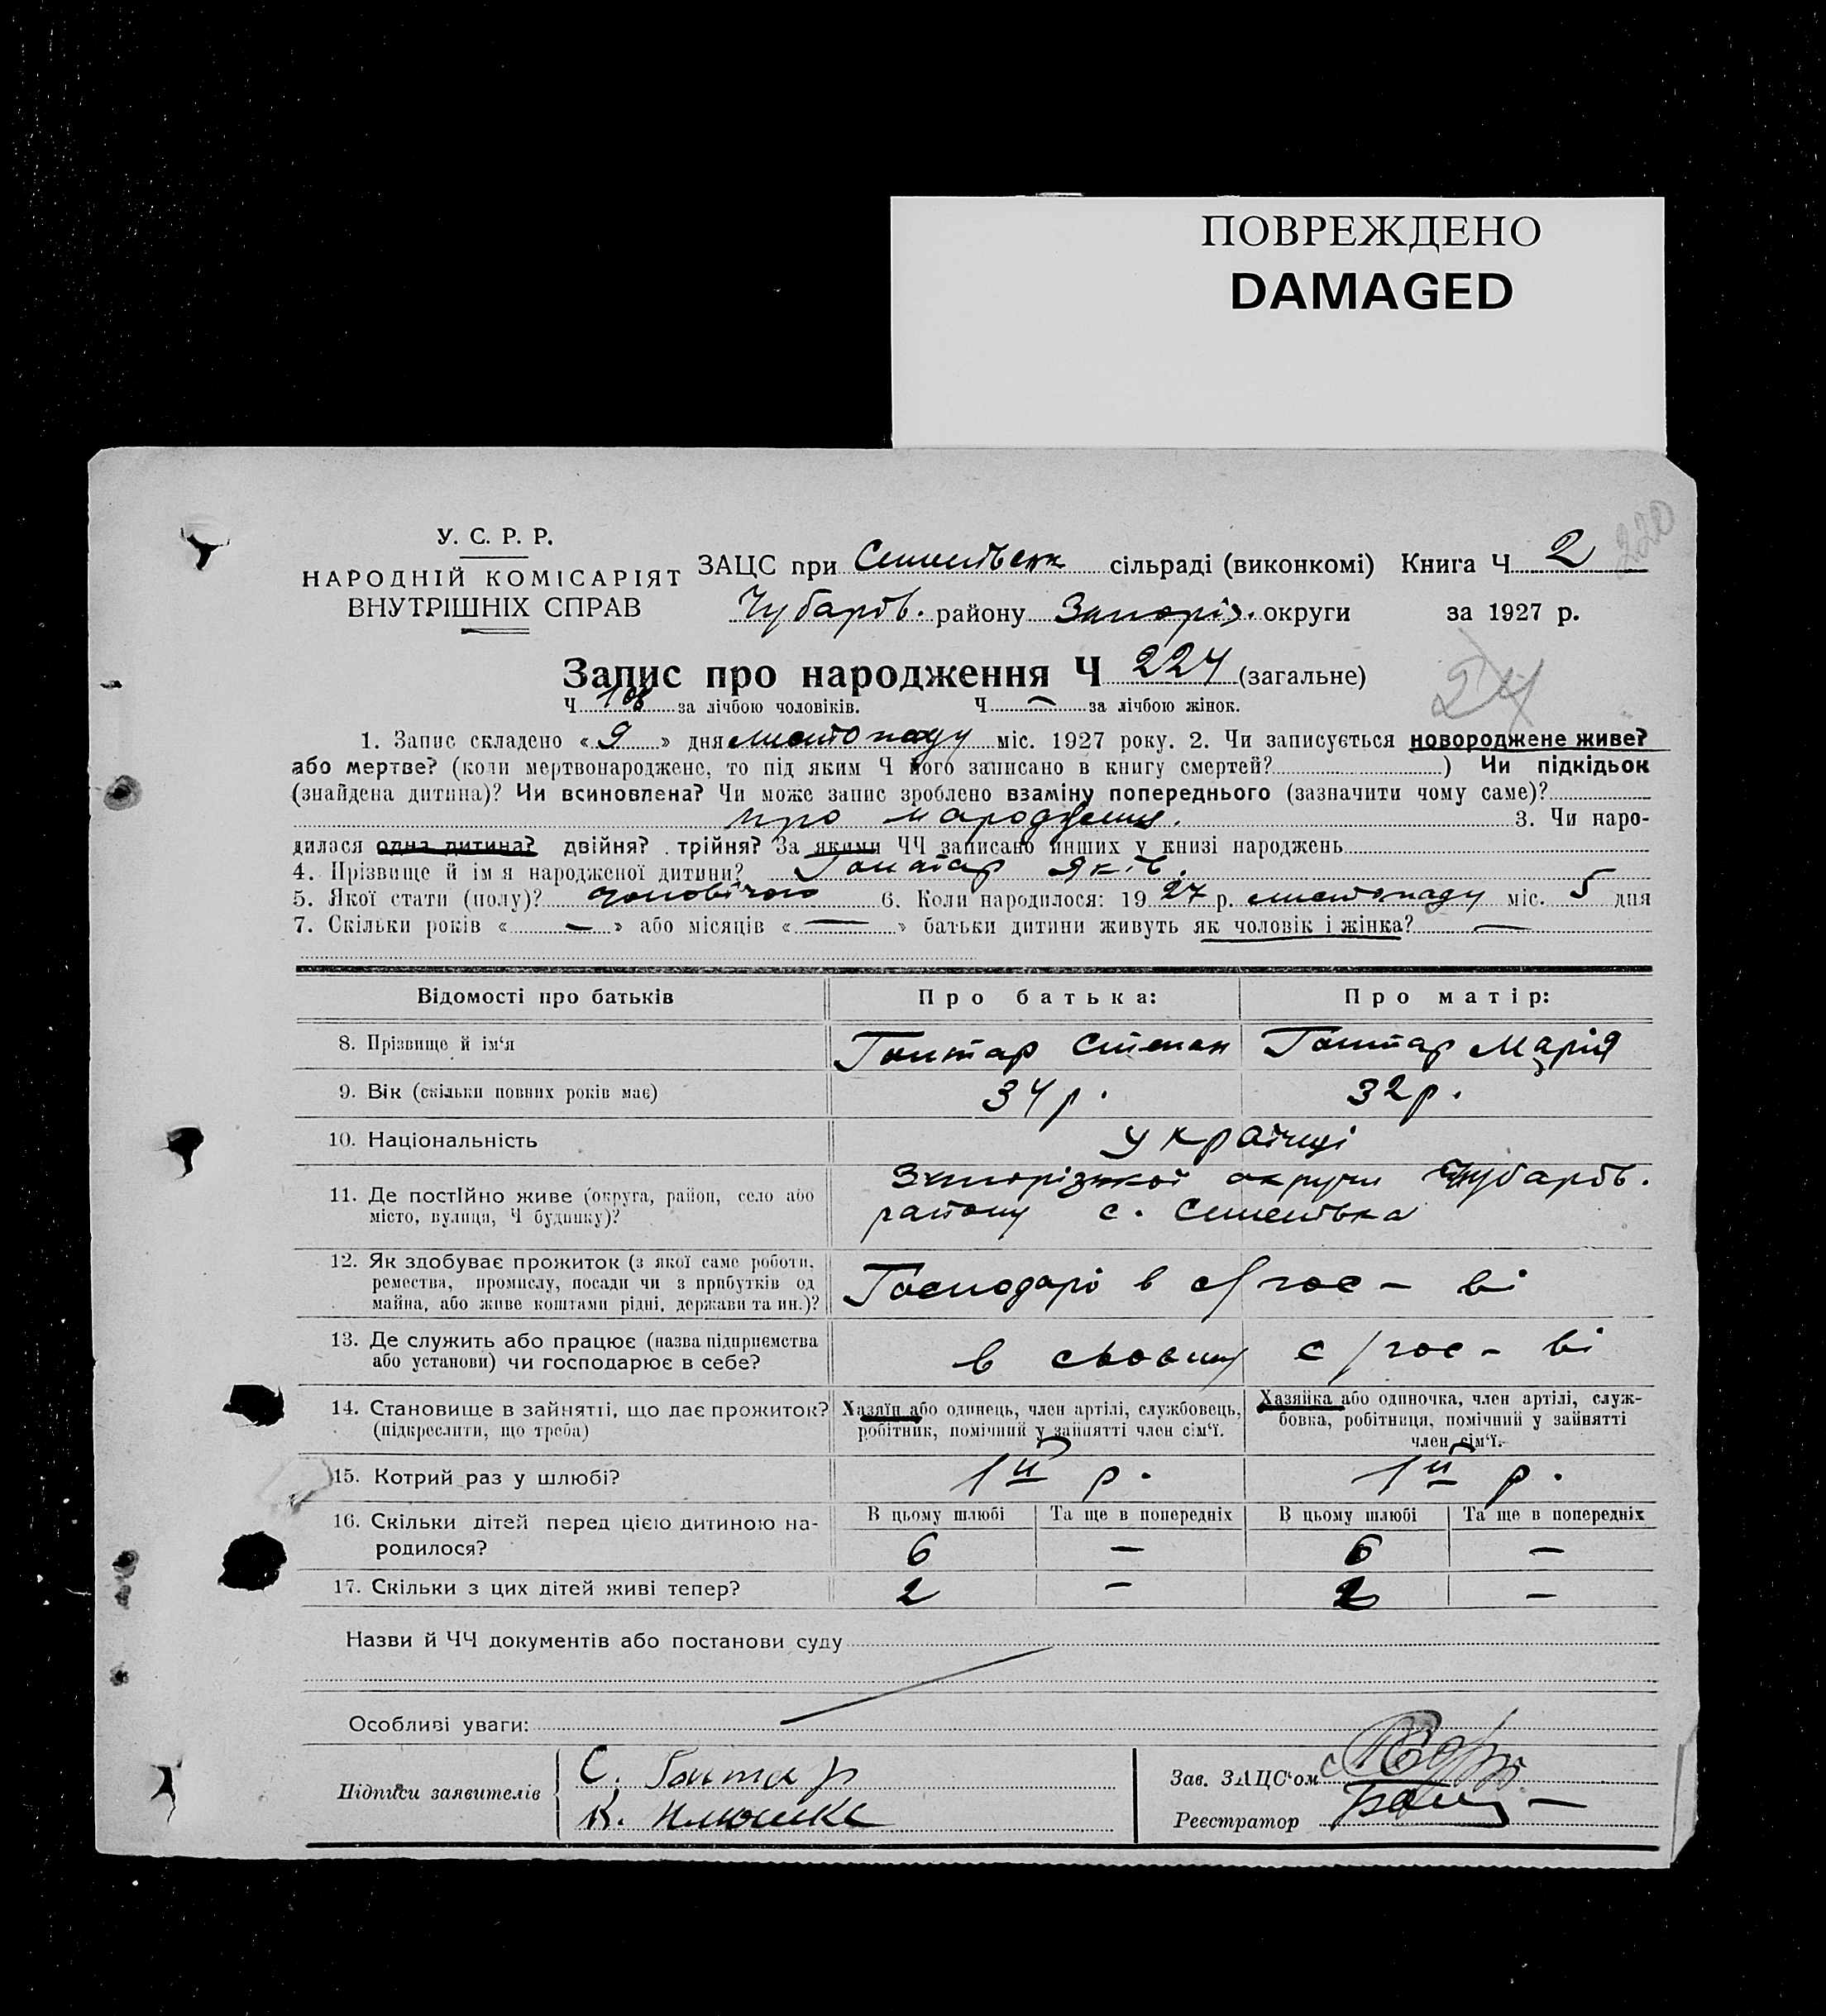 ПОВРЕЖДЕНО
DAMAGED
220
У. С. Р. Р.
НАРОДНІЙ КОМІСАРІЯТ
ВНУТРІШНІХ СПРАВ
ЗАЦС при сільраді (виконкомі) Книга Ч 2
Чубарів. району Запоріз. округи за 1927 р.
Запис про народження Ч 224 (загальне)
Ч 108 за лічбою чоловіків. Ч — за лічбою жінок.
1. Запис складено « 9 » дня листопаду міс. 1927 року. 2. Чи записується новороджене живе?
або мертве? (коли мертвонароджене, то під яким Ч його записано в книгу смертей? ) Чи підкідьок
(знайдена дитина)? Чи всиновлена? Чи може запис зроблено взаміну попереднього (зазначити чому саме)?
про народження. 3. Чи наро-
дилася одна дитина? двійня? трійня? За якими ЧЧ записано инших у книзі народжень
4. Прізвище й ім я народженої дитини? Гонтар Яків.
5. Якої стати (полу)? чоловічого 6. Коли народилося: 19 27 р. листопаду міс. 5 дня
7. Скільки років « — » або місяців « — » батьки дитини живуть як чоловік і жінка? —
Відомості про батьків Про батька: Про матір:
8. Прізвище й ім‘я Гонтар Степан Гонтар Марія
9. Вік (скільки повних років має) 34 р. 32 р.
10. Національність українці
11. Де постІйно живе (округа, район, село або
місто, вулиця, Ч будинку)?
Запорізької округи Чубарів.
району с. Семенівка
12. Як здобуває прожиток (з якої саме роботи,
ремества, промислу, посади чи з прибутків од
майна, або живе коштами рідні, держави та ин.)?
Господарі в с/гос-ві
13. Де служить або працює (назва підприємства
або установи) чи господарює в себе?
в своєму с/гос-ві
14. Становище в зайнятті, що дає прожиток?
(підкреслити, що треба)
Хазяїн або одинець, член артілі, службовець,
робітник, помічний у зайнятті член сім‘ї.
Хазяйка або одиночка, член артілі, служ-
бовка, робітниця, помічний у зайнятті
член сім‘ї.
15. Котрий раз у шлюбі? 1й р. 1й р.
16. Скільки дітей перед цією дитиною на-
родилося?
В цьому шлюбі Та ще в попередніх В цьому шлюбі Та ще в попередніх
6 — 6 —
17. Скільки з цих дітей живі тепер? 2 — 2 —
Назви й ЧЧ документів або постанови суду
Особливі уваги:
Підписи заявителів
С. Гонтар
К.
Зав. ЗАЦС‘ом
Реєстратор